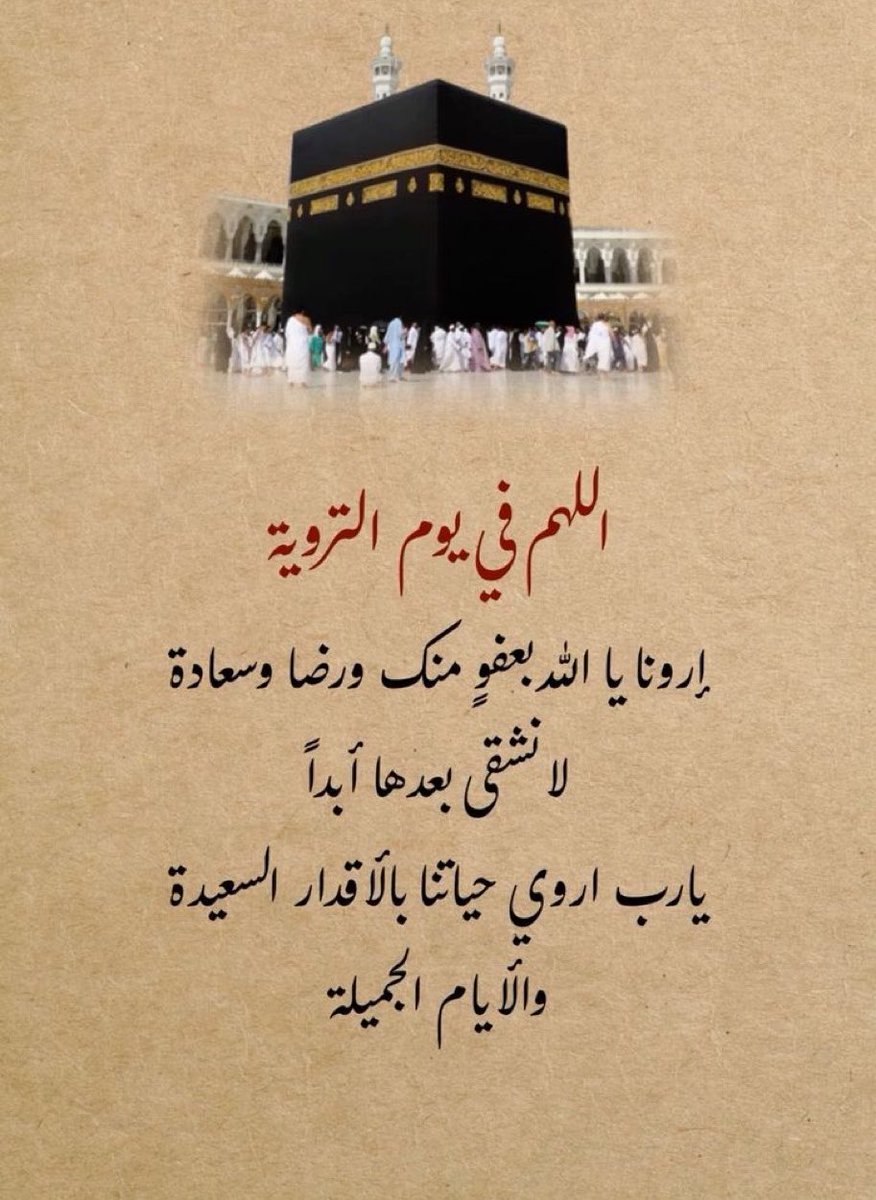 اللهم في يوم التروية
إرونا يا الله بعفوٍ منك ورضا وسعادة
لا نشقى بعدها أبداً
يارب اروي حياتنا بالأقدار السعيدة
والأيام الجميلة